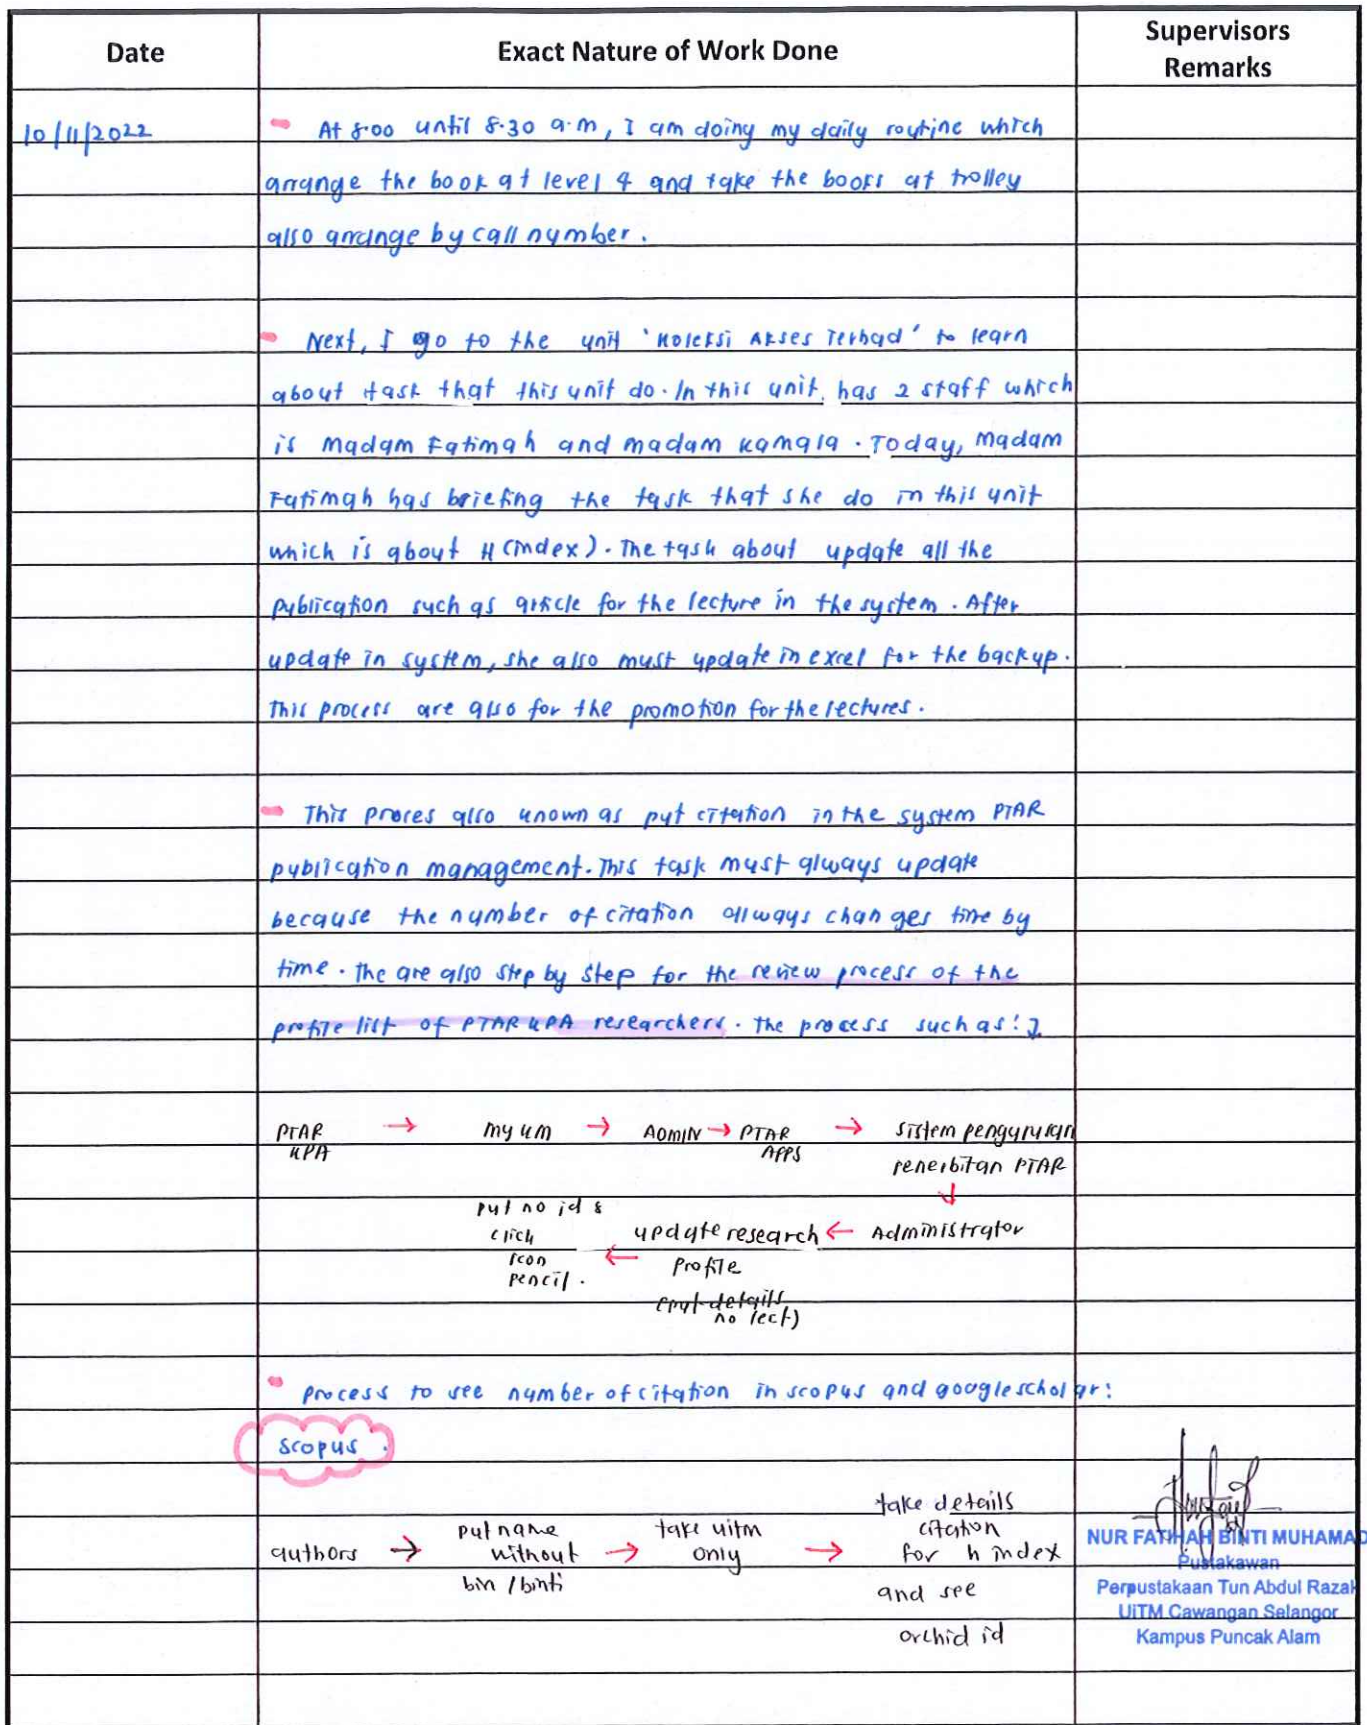 Date
Exact Nature of Work Done
Supervisors
Remarks
10/11/2022
At 8.00 until 8.30 a.m, I am doing my daily routine which
arrange the book at level 4 and take the books at trolley
also arrange by call number.
Next, I go to the unit 'Koleksi Akses Terhad' to learn
about task that this unit do. In this unit, has 2 staff which
is Madam Fatimah and madam Kamala. Today, Madam
Fatimah has briefing the task that she do in this unit
which is about H (index). The task about update all the
publication such as article for the lecture in the system. After
update in system, she also must update in excel for the backup.
This process are also for the promotion for the lectures.
This proces also known as put citation in the system PTAR
publication management. This task must always update
because the number of citation allways changes time by
time. the are also step by step for the review process of the
profile list of PTAR KPA researchers. the process such as:
PTAR
KPA
→
→
ADMIN → PTAR
APPS
→
sistem pengurusan
penerbitan PTAR
↓
Administrator
←
update research
profile
(put details
no lect)
←
put no id &
click
icon
pencil.
process to see number of citation in scopus and google scholar:
Scopus.
authors
→
put name
without
bin / binti
→
take uitm
only
→
take details
citation
for h index
and see
orchid id
NUR FATIHAH BINTI MUHAMAD
Pustakawan
Perpustakaan Tun Abdul Razak
UiTM Cawangan Selangor
Kampus Puncak Alam